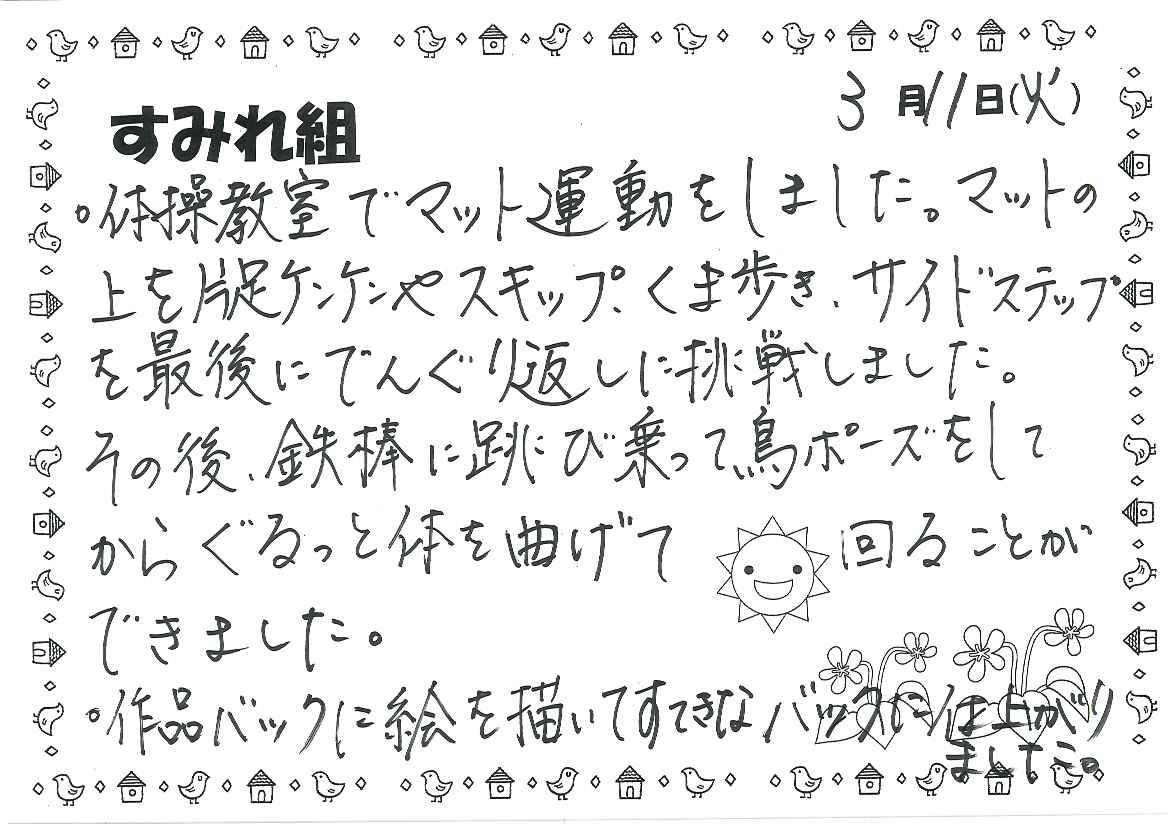 3月11日(火)
すみれ組
。体操教室でマット運動をしました。マットの
上を片足ケンケンやスキップ、くま歩き、サイドステップ
を最後にでんぐり返しに挑戦しました。
その後、鉄棒に跳び乗って、鳥ポーズをして
からぐるっと体を曲げて 回ることが
できました。
。作品バックに絵を描いてすてきなバックに仕上がり
ました。